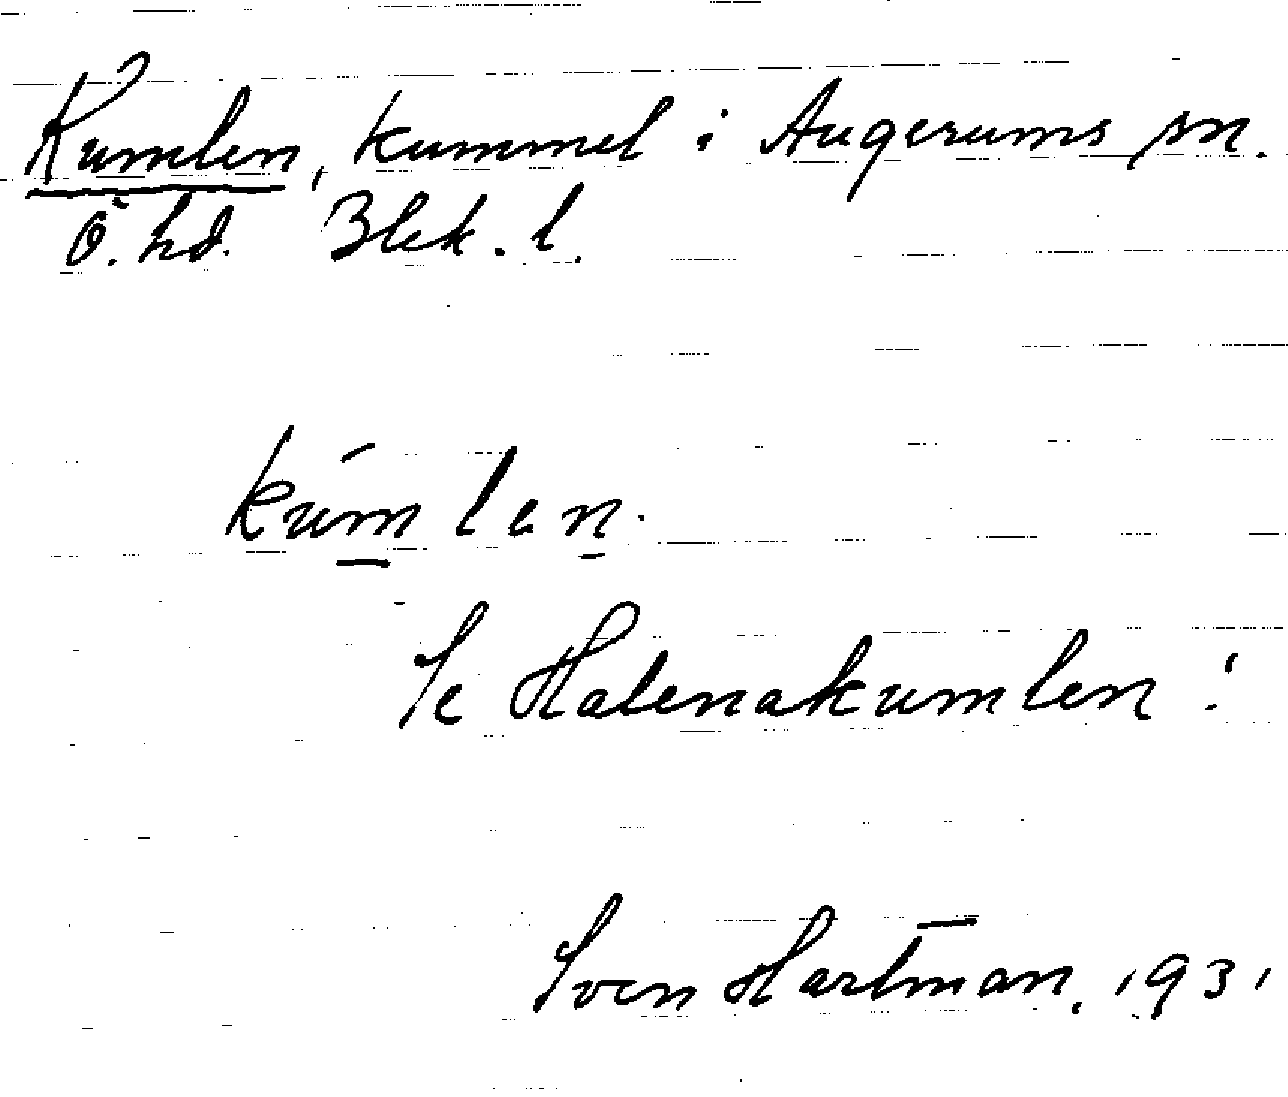 Kumlen, kummel i Augerums sn.
Ö. hd. Blek. l.
kúmlen.
Se Halenakumlen!
Sven Hartman. 1931